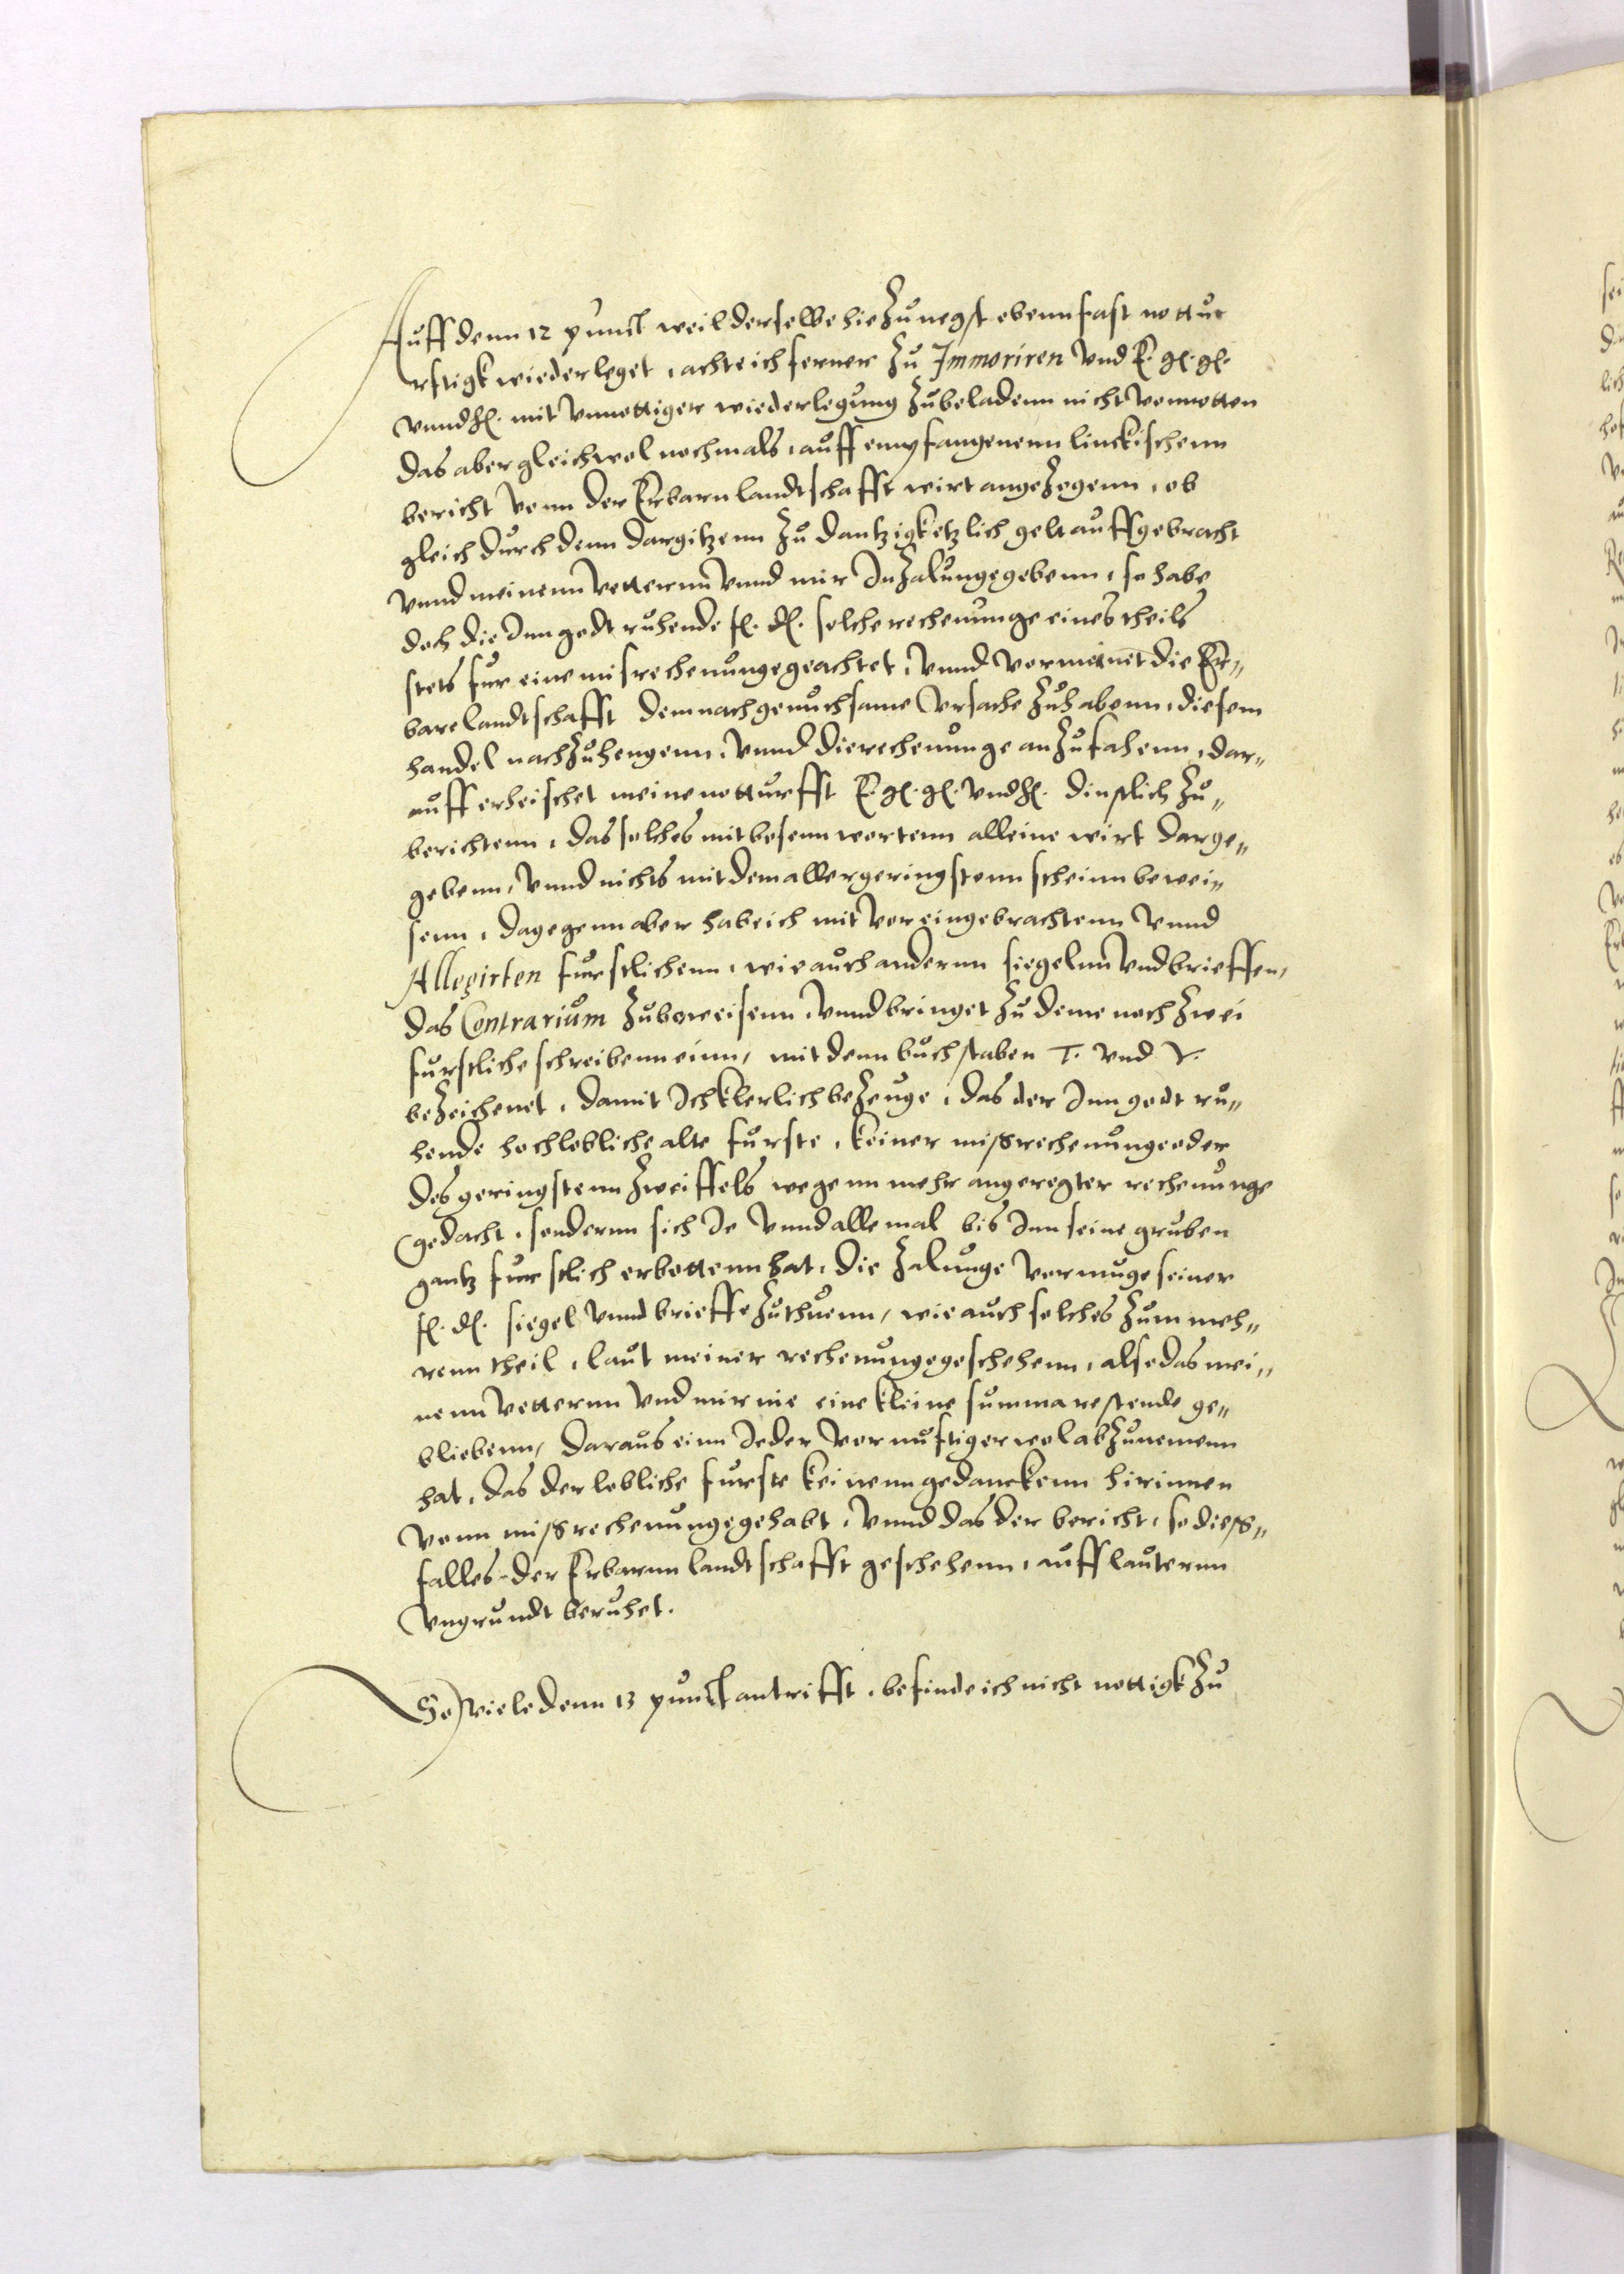 Auff denn 12 punct weil derselbe hie zu negst obenn fast nottur
rftigk wiederleget, achte ich ferner zu Immoriren vnd E. gl. gl.
vnnd hl. mit vnnottiger wiederlegung zubeladenn nicht vonnotten
das aber gleichwol nochmals, auff empfangenenn linckischenn
bericht vonn der Erbarn landtschafft wirt angezogenn, ob
gleich durch denn dargitzenn zu dantzigk etzlich gelt auffgebracht
vnnd meinenn vetternn vnnd mir In zalung gegebenn, so habe
doch die Inn godt ruhende fl. dl. solche rechenunge eines theils
stets fur eine misrechenunge geachtet, vnnd vermeinet die Er„
bare landtschafft demnach genuchsame vrsache zuhabenn, diesem
handel nachzuhengenn, vnnd die rechenunge anzufahenn, dar„
auff erheischet meine notturfft E. gl. gl. vnd hl. dinstlich zu„
berichtenn, das solches mit bosenn wortenn alleine wirt darge„
gebenn, vnnd nichts mit dem allergeringstenn scheinn bewei„
senn, dagegenn aber habe ich mit vor eingebrachtenn vnnd
Allegirten furstlichenn, wie auch andernn siegelnn vnd brieffen,
das Contrarium zubeweisenn, vnnd bringet zu deme noch zwei
furstliche schreibenn einn, mit denn buchstaben T. vnd V.
bezeichenet, damit Ich klerlich bezeuge, das der Inn godt ru„
hende hochlobliche alte furste, keiner missrechenunge oder
des geringstenn zweiffels wegenn mehr angeregter rechenunge
gedacht, sondernn sich Je vnnd allemal bis Inn seine gruben
gantz furstlich erbottenn hat, die zalunge vermuge seiner
fl. dl. siegel vnnd brieffe zuthuenn, wie auch solches zum meh„
renn theil, laut meiner rechenunge geschehenn, also das mei„
nenn vetternn vnd mir nie eine kleine summa restende ge„
bliebenn, daraus einn Jeder vernuftiger wol abzunemenn
hat, das der lobliche furste keinenn gedanckenn hirinnen
vonn missrechenunge gehabt, vnnd das der bericht, so diess„
falles der Erbarnn landtschafft geschehenn, auff lauternn
vngrundt beruhet.
So viele denn 13 punct antrifft, befinde ich nicht nottigk zu